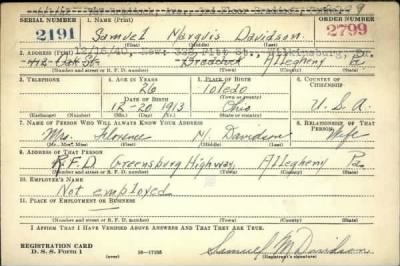 SERIAL NUMBER 1. NAME (Print) ORDER NUMBER
2191 Samuel Marquis Davidson 2799
(First) (Middle) (Last)
2. ADDRESS (Print) 12/16/40, New: Pitt St., Wilkinsburg, Pa.
Braddock Allegheny Pa
(Number and street or R. F. D. number) (Town) (County) (State)
3. TELEPHONE 4. AGE IN YEARS 5. PLACE OF BIRTH 6. COUNTRY OF CITIZENSHIP
26 Toledo
DATE OF BIRTH (Town or county)
12-20 1913 Ohio U. S. A.
(Exchange) (Number) (Mo.) (Day) (Yr.) (State or country)
7. NAME OF PERSON WHO WILL ALWAYS KNOW YOUR ADDRESS 8. RELATIONSHIP OF THAT PERSON
Mrs. Florence M. Davidson Wife
(Mr., Mrs., Miss) (First) (Middle) (Last)
9. ADDRESS OF THAT PERSON
R.F.D. Greensburg Highway, Allegheny Pa.
(Number and street or R. F. D. number) (Town) (County) (State)
10. EMPLOYER'S NAME
Not employed
11. PLACE OF EMPLOYMENT OR BUSINESS
(Number and street or R. F. D. number) (Town) (County) (State)
I AFFIRM THAT I HAVE VERIFIED ABOVE ANSWERS AND THAT THEY ARE TRUE.
REGISTRATION CARD
D. S. S. Form 1 (over) Samuel M. Davidson